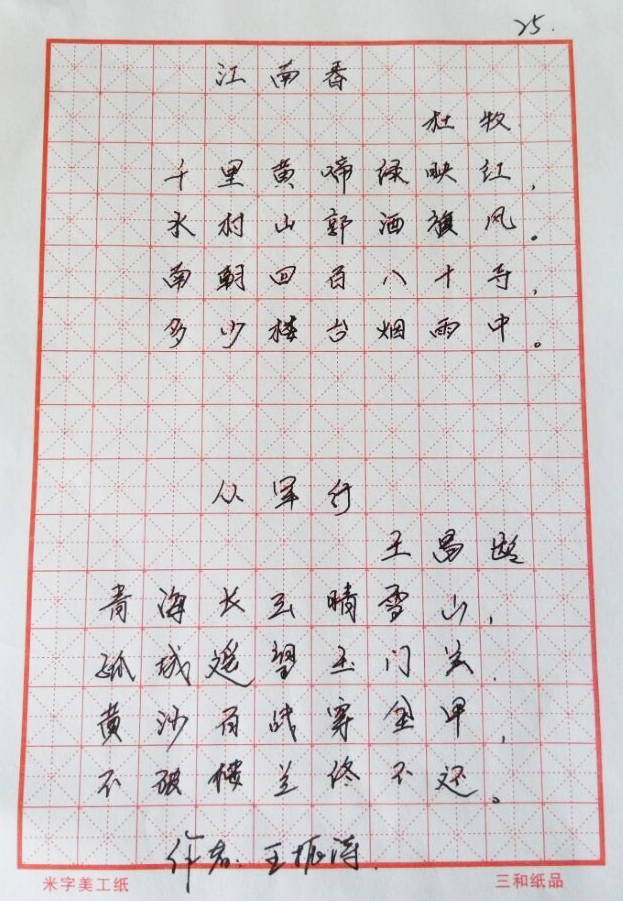 25.
江南春
杜牧
千里黄啼绿映红，
水村山郭酒旗风。
南朝四百八十寺，
多少楼台烟雨中。
从军行
王昌龄
青海长云晴雪山，
孤城遥望玉门关.
黄沙百战穿金甲，
不破楼兰终不还。
作者：王振涛.
米字美工纸
三和纸品